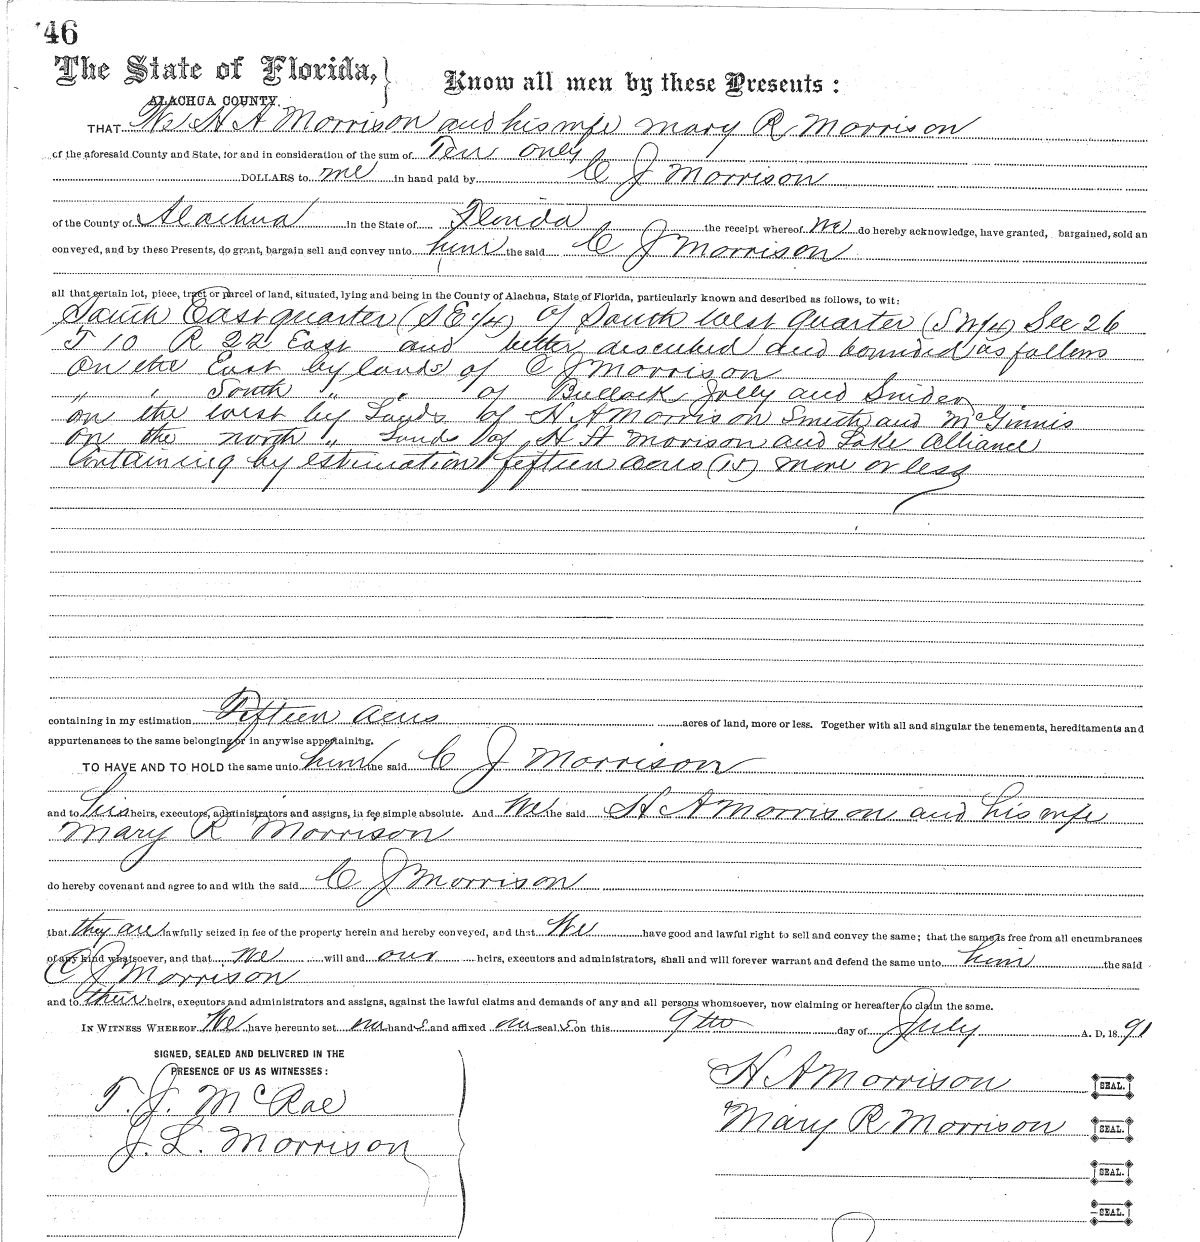 '46
The State of Florida,} Know all men by these Presents:
ALACHUA COUNTY.
THAT We H A Morrison and his wife Mary R Morrison
of the aforesaid County and State, for and in consideration of the sum of Ten only
DOLLARS to me in hand paid by C J Morrison
of the County of Alachua in the State of Florida the receipt whereof we do hereby acknowledge, have granted, bargained, sold an
conveyed, and by these Presents, do grant, bargain sell and convey unto him the said C J Morrison
all that certain lot, piece, tract or parcel of land, situated, lying and being in the County of Alachua, State of Florida, particularly known and described as follows, to wit:
South East quarter (S E 1/4) of South West Quarter (S W 1/4) Sec 26
T 10 R 22 East and better described and bounded as follows
On the East by lands of C J Morrison
" " South " " of Bullock Jolly and Snider
on the west by Lands of H A Morrison Smith and McGinnis
on the north " Lands of H A Morison and Lake Alliance
Containing by estimation fifteen acres (15) more or less
containing in my estimation Fifteen acres acres of land, more or less. Together with all and singular the tenements, hereditaments and
appurtenances to the same belonging or in anywise appertaining.
TO HAVE AND TO HOLD the same unto him the said C J Morrison
and to his heirs, executors, administrators and assigns, in fee simple absolute. And We the said H A Morrison and his wife
Mary R Morrison
do hereby covenant and agree to and with the said C J Morrison
that they are lawfully seized in fee of the property herein and hereby conveyed, and that We have good and lawful right to sell and convey the same; that the same is free from all encumbrances
of any kind whatsoever, and that we will and our heirs, executors and administrators, shall and will forever warrant and defend the same unto him the said
C J Morrison
and to their heirs, executors and administrators and assigns, against the lawful claims and demands of any and all persons whomsoever, now claiming or hereafter to claim the same.
IN WITNESS WHEREOF We have hereunto set our hands and affixed our seals on this 9th day of July A. D. 1891
SIGNED, SEALED AND DELIVERED IN THE
PRESENCE OF US AS WITNESSES:
T. J. McRae
J. L. Morrison
H A Morrison SEAL.
Mary R Morrison SEAL.
SEAL.
SEAL.